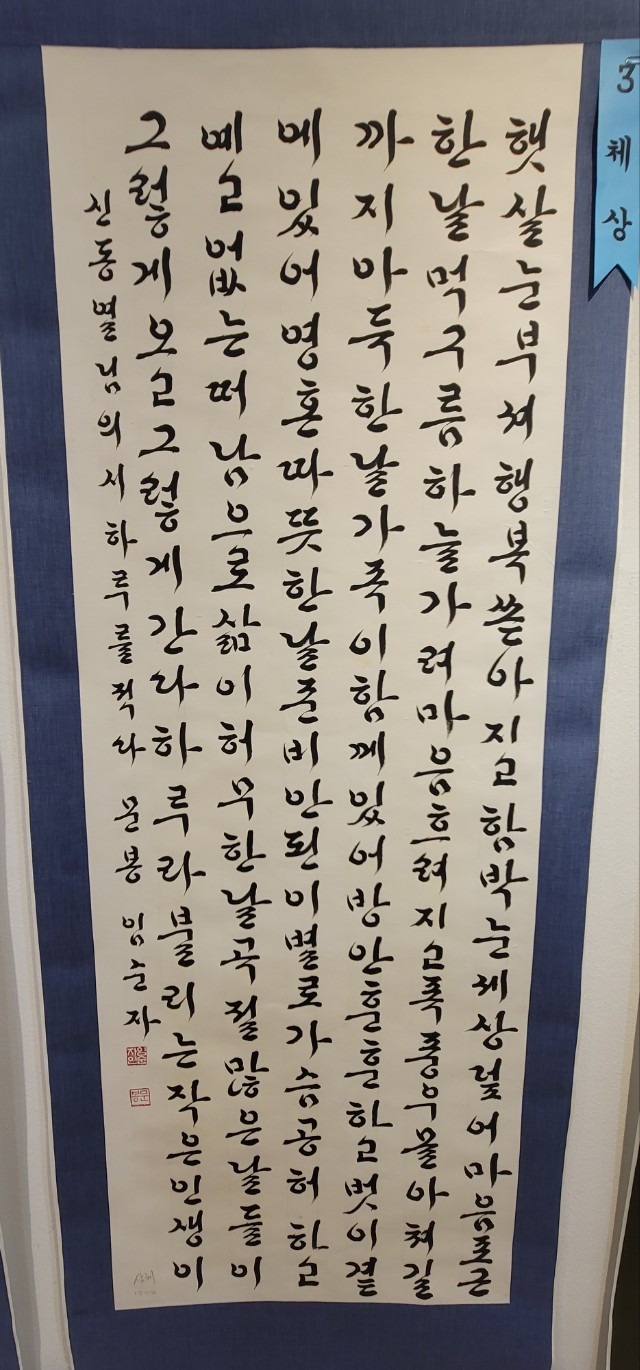 3체상
햇살눈부셔행복쏟아지고함박눈세상덮어마음포근
한날먹구름하늘가려마음흐려지고폭풍우몰아쳐길
까지아득한날가족이함께있어방안훈훈하고벗이곁
에있어영혼따뜻한날준비안된이별로가슴공허하고
예고없는떠남으로삶이허무한날곡절많은날들이
그렇게오고그렇게간다하루라불리는작은인생이
신동열님의시하루를적다 문봉 임순자